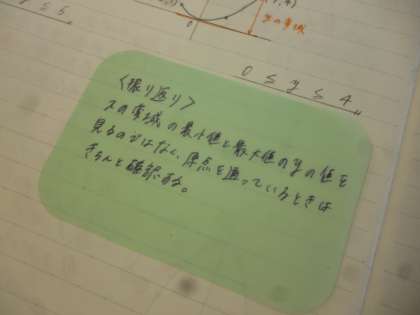 ≦ y ≦ 5
0
yの変域
0 ≦ y ≦ 4
〈振り返り〉
xの変域の最小値と最大値のyの値を
見るのではなく、原点を通っているときは
きちんと確認する。